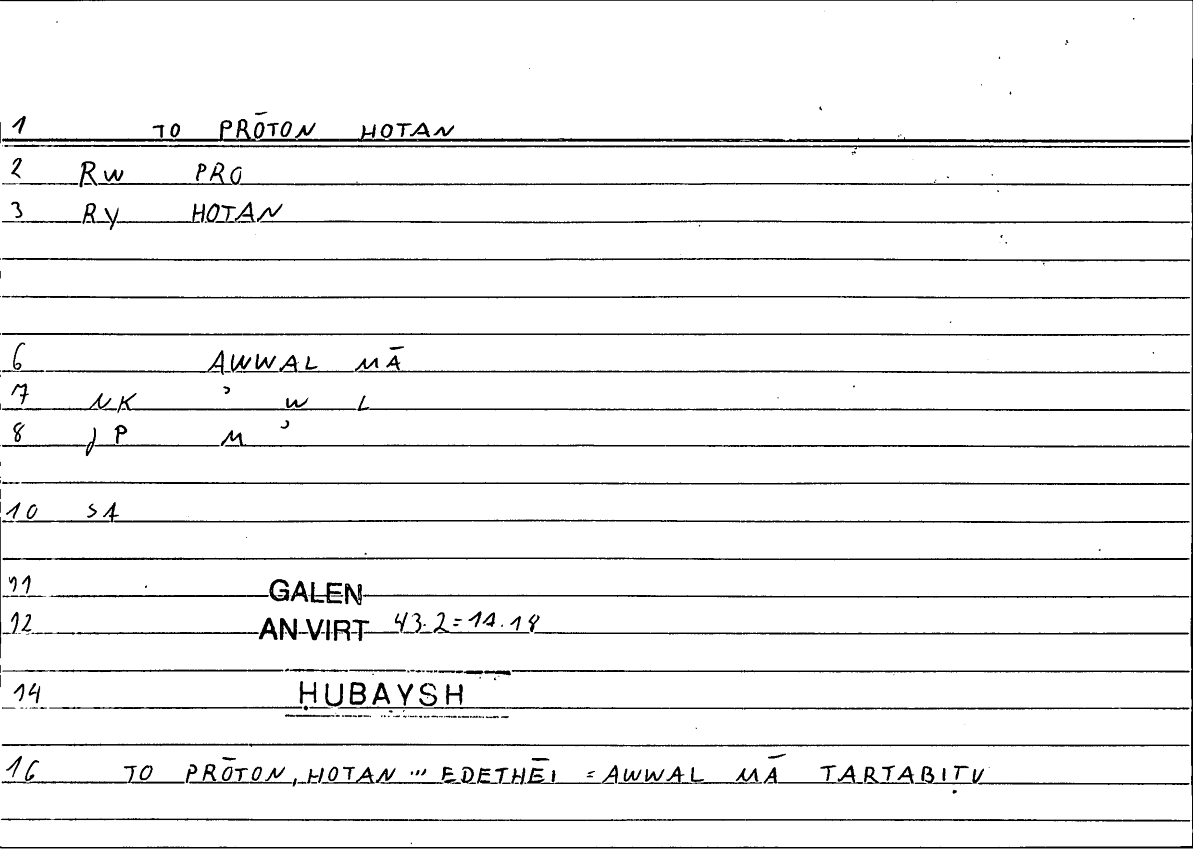 1 TO PRŌTON HOTAN
2 Rw PRO
3 Ry HOTAN
6 AWWAL MĀ
7 NK ʾ W L
8 JP M ʾ
10 SA
11 GALEN
12 AN-VIRT 43.2=14.18
14 ḤUBAYSH
16 TO PRŌTON, HOTAN ... EDETHĒI = AWWAL MĀ TARTABIṬU